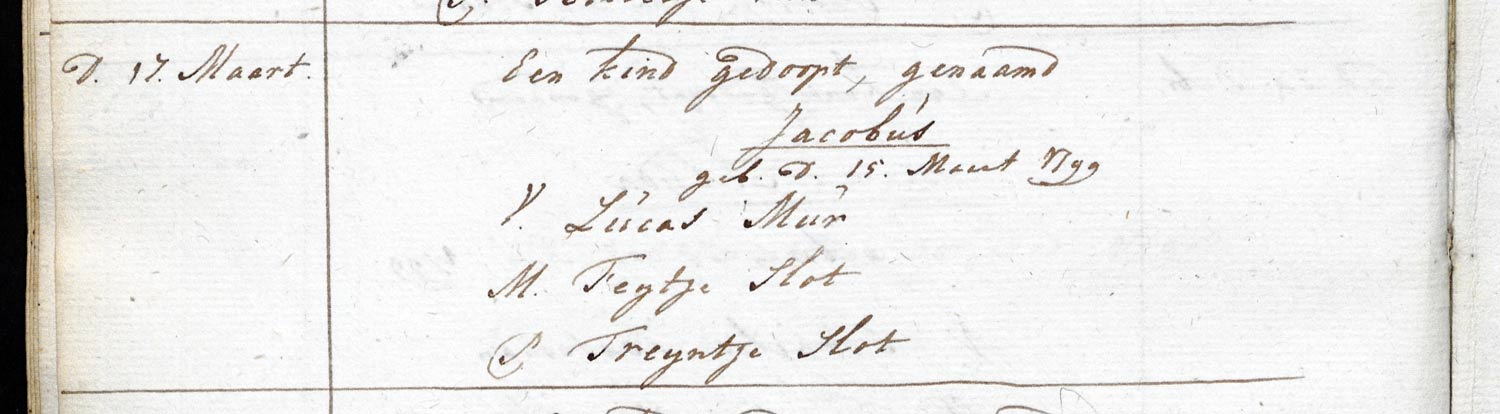 D. 17. Maart.
Een kind gedoopt, genaamd
Jacobus
geb. D. 15. Maart 1799
V. Lucas Mur
M. Feytje Slot
P. Treyntje Slot